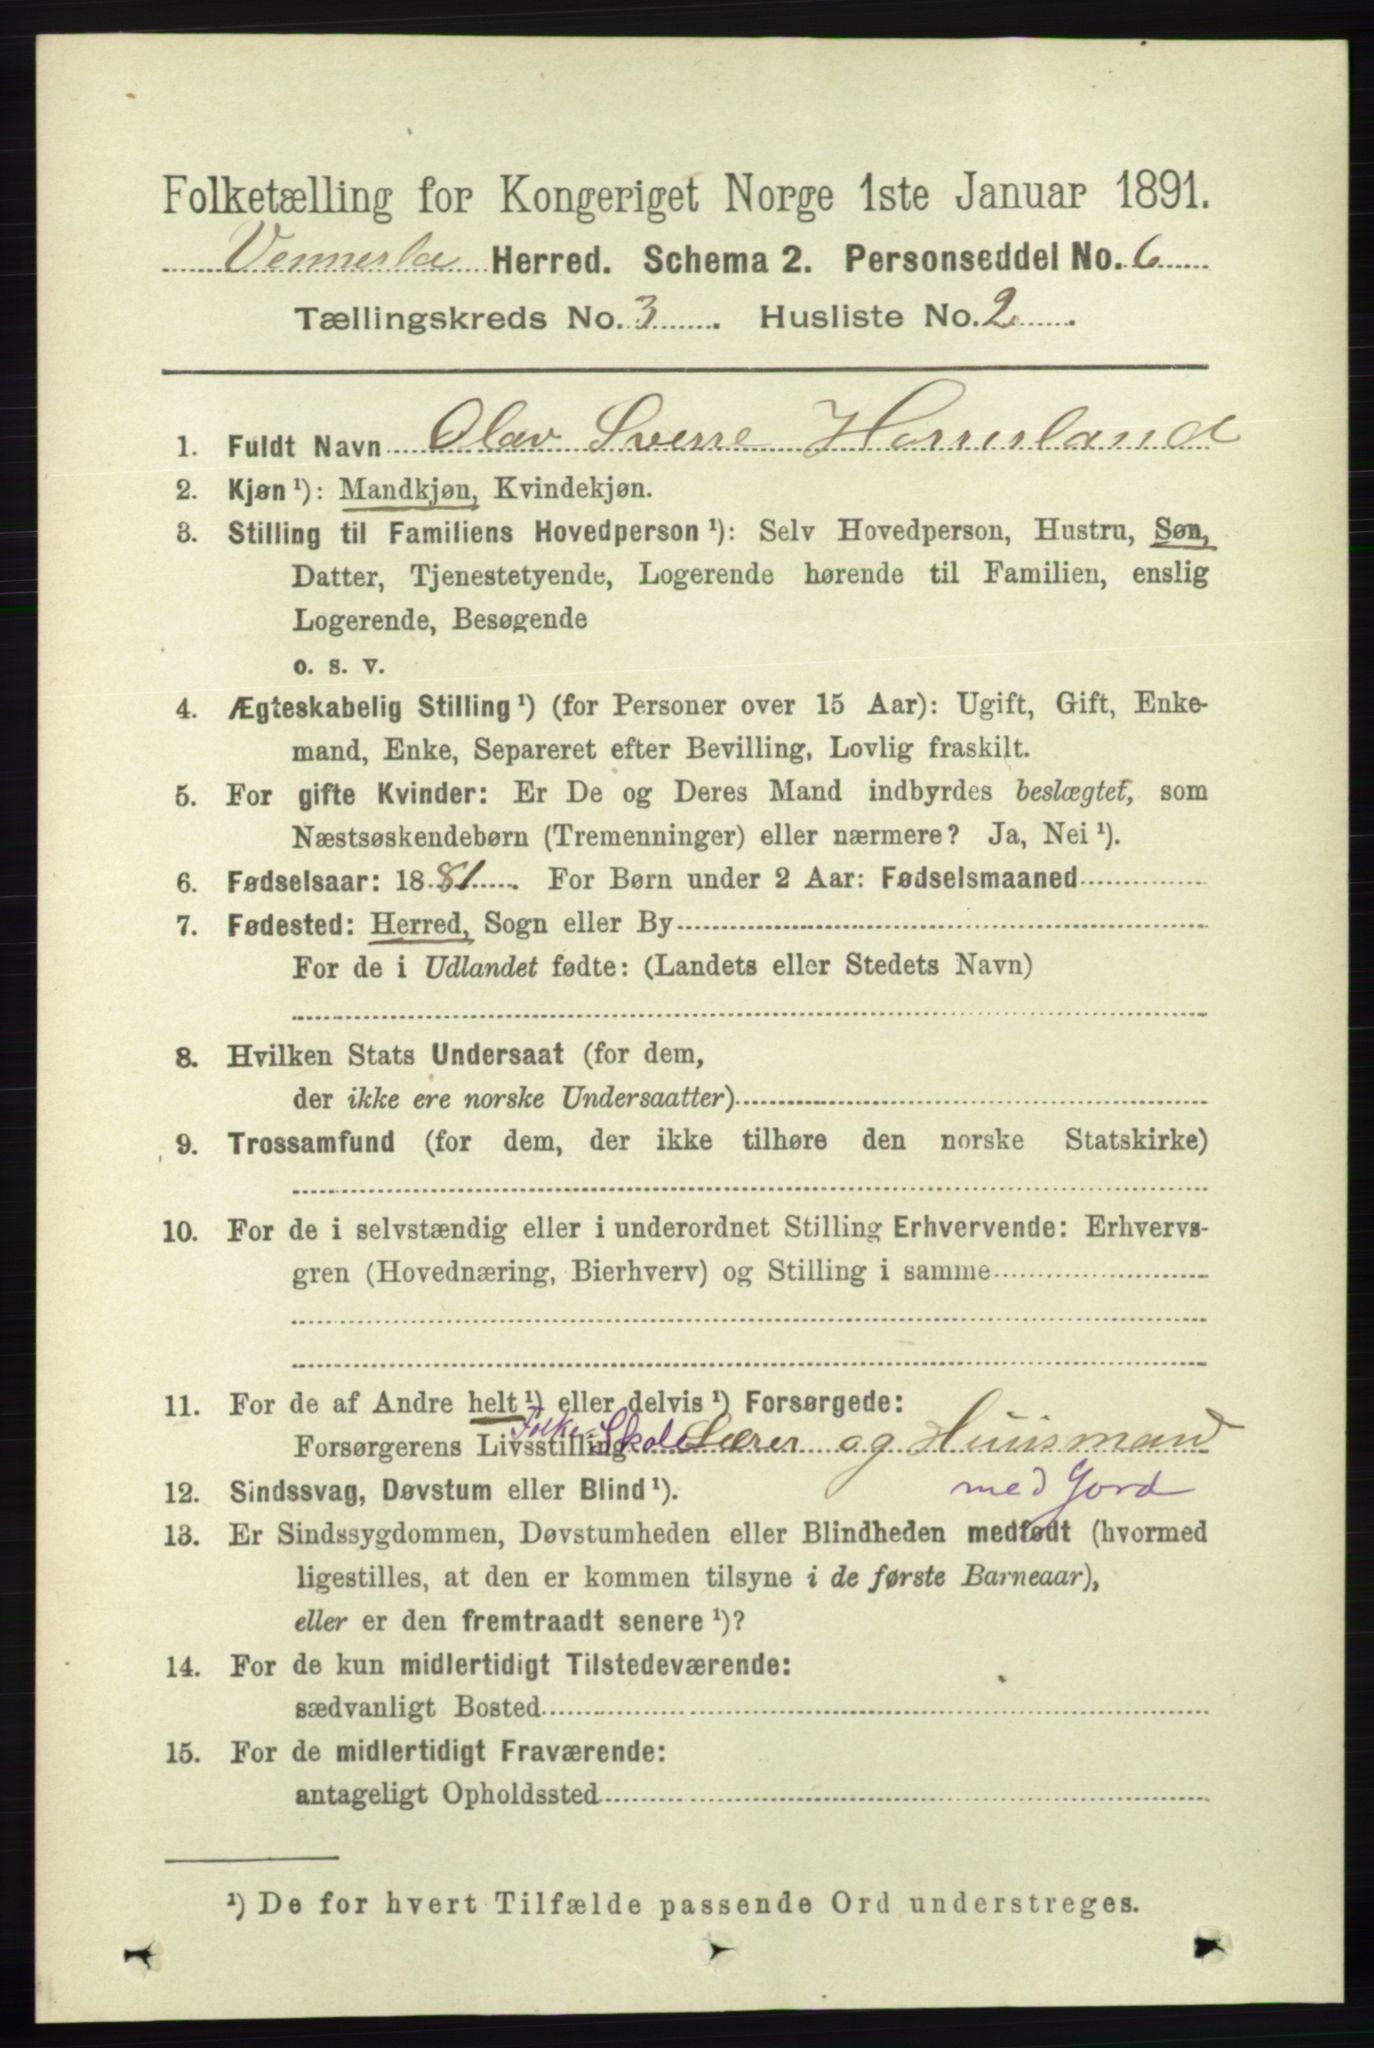 Folketælling for Kongeriget Norge 1ste Januar 1891.
Vennesla Herred. Schema 2. Personseddel No. 6
Tællingskreds No. 3. Husliste No. 2.
1. Fuldt Navn Olav Sverre
2. Kjøn ¹): Mandkjøn, Kvindekjøn.
3. Stilling til Familiens Hovedperson ¹): Selv Hovedperson, Hustru, Søn,
Datter, Tjenestetyende, Logerende hørende til Familien, enslig
Logerende, Besøgende
o. s. v.
4. Ægteskabelig Stilling ¹) (for Personer over 15 Aar): Ugift, Gift, Enke-
mand, Enke, Separeret efter Bevilling, Lovlig fraskilt.
5. For gifte Kvinder: Er De og Deres Mand indbyrdes beslægtet, som
Næstsøskendebørn (Tremenninger) eller nærmere? Ja, Nei ¹).
6. Fødselsaar: 1881. For Børn under 2 Aar: Fødselsmaaned
7. Fødested: Herred, Sogn eller By
For de i Udlandet fødte: (Landets eller Stedets Navn)
8. Hvilken Stats Undersaat (for dem,
der ikke ere norske Undersaatter)
9. Trossamfund (for dem, der ikke tilhøre den norske Statskirke)
10. For de i selvstændig eller i underordnet Stilling Erhvervende: Erhvervs-
gren (Hovednæring, Bierhverv) og Stilling i samme
11. For de af Andre helt ¹) eller delvis ¹) Forsørgede:
Forsørgerens Livsstilling Folke-Skole Lærer og Huusmand
med Jord
12. Sindssvag, Døvstum eller Blind ¹).
13. Er Sindssygdommen, Døvstumheden eller Blindheden medfødt (hvormed
ligestilles, at den er kommen tilsyne i de første Barneaar),
eller er den fremtraadt senere ¹)?
14. For de kun midlertidigt Tilstedeværende:
sædvanligt Bosted
15. For de midlertidigt Fraværende:
antageligt Opholdssted
¹) De for hvert Tilfælde passende Ord understreges.